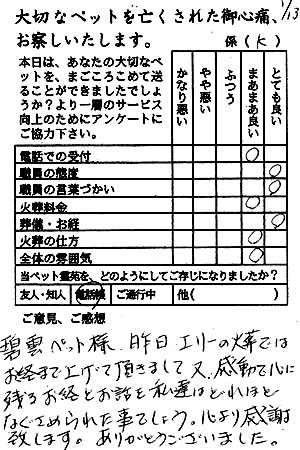 大切なペットを亡くされた御心痛、 1/13
お察しいたします。 係(K)
本日は、あなたの大切なペ
ットを、まごころこめて送
ることができましたでしょ
うか？より一層のサービス
向上のためにアンケートに
ご協力下さい。
かなり悪い
やや悪い
ふつう
まあまあ良い
とても良い
電話での受付 ○
職員の態度 ○
職員の言葉づかい ○
火葬料金 ○
葬儀・お経 ○
火葬の仕方 ○
全体の雰囲気 ○
当ペット霊苑を、どのようにしてご存じになりましたか？
友人・知人 電話帳 ご通行中 他( )
ご意見、ご感想
碧雲ペット様、昨日エリーの火葬では
お経まで上げて頂きまして又、感動で心に
残るお経とお話を私達はどれほど
なぐさめられた事でしょう。心より感謝
致します。ありがとうございました。